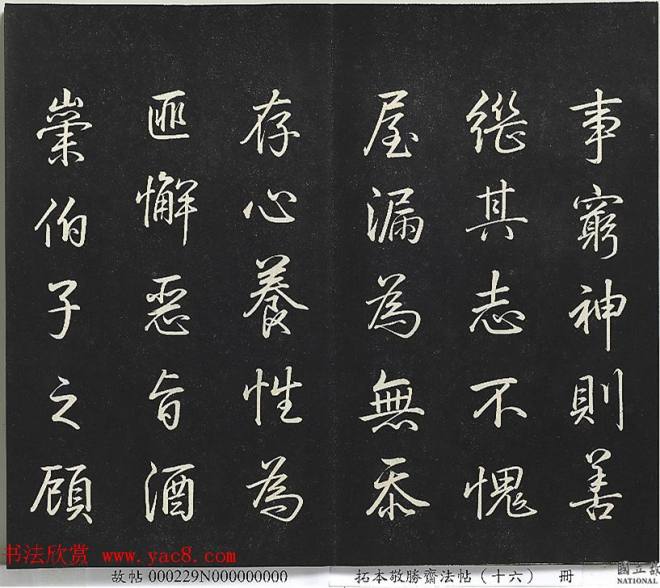 事窮神則善
繼其志不愧
屋漏為無忝
存心養性為
匪懈惡旨酒
崇伯子之顧
书法欣赏 www.yac8.com
故帖 000229N000000000
拓本敬勝齋法帖(十六) 冊
國立故
NATIONAL